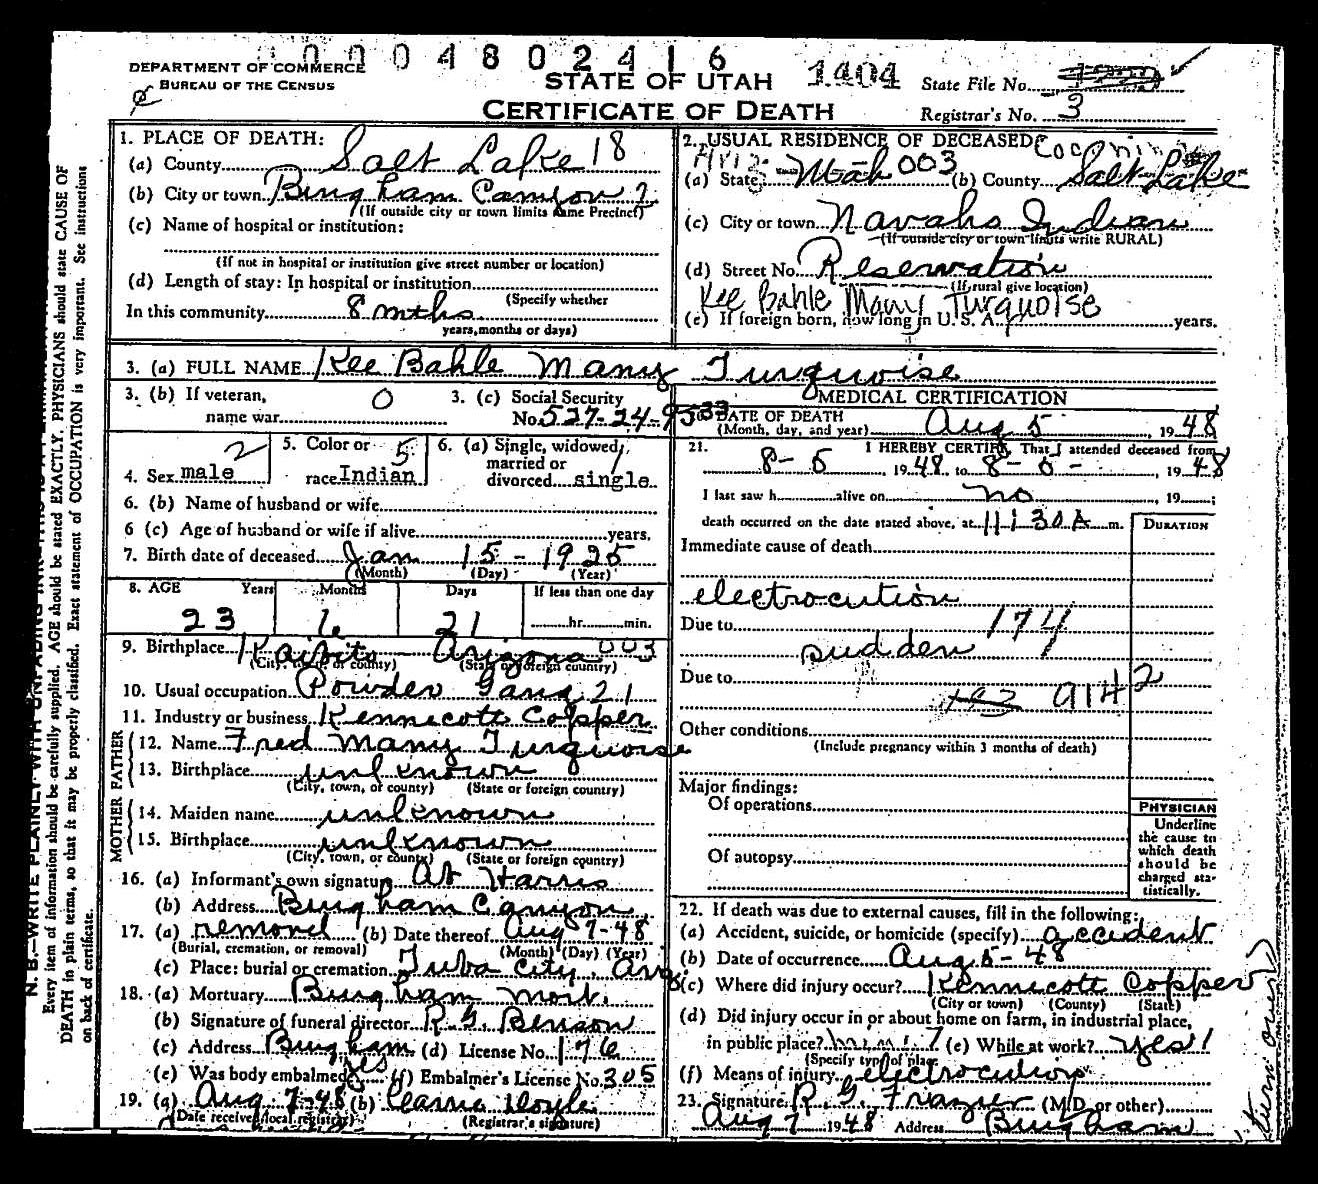 0004802416
DEPARTMENT OF COMMERCE
BUREAU OF THE CENSUS
STATE OF UTAH
1404
State File No.
CERTIFICATE OF DEATH
Registrar's No. 3
1. PLACE OF DEATH:
(a) County Salt Lake 18
(b) City or town Bingham Canyon 2
(If outside city or town limits name Precinct)
(c) Name of hospital or institution:
(If not in hospital or institution give street number or location)
(d) Length of stay: In hospital or institution
(Specify whether
In this community 8 mths
years, months or days)
2. USUAL RESIDENCE OF DECEASED: Coconino
Ariz.
(a) State Utah 003 (b) County Salt Lake
(c) City or town Navaho Indian
(If outside city or town limits write RURAL)
(d) Street No. Reservation
(If rural give location)
Kee Bahle Many Turquoise
(e) If foreign born, how long in U. S. A. years.
3. (a) FULL NAME Kee Bahle Many Turquoise
3. (b) If veteran, name war 0
3. (c) Social Security No. 527-24-9533
4. Sex male 2
5. Color or race Indian 5
6. (a) Single, widowed, married or divorced single 1
6. (b) Name of husband or wife
6 (c) Age of husband or wife if alive years.
7. Birth date of deceased Jan 15 - 1925
(Month) (Day) (Year)
8. AGE Years Months Days If less than one day
23 6 21 hr. min.
9. Birthplace Kaibito - Arizona 003
(City, town, or county) (State or foreign country)
10. Usual occupation Powder Gang 21
11. Industry or business Kennecott Copper
FATHER
12. Name Fred Many Turquoise
13. Birthplace unknown
(City, town, or county) (State or foreign country)
MOTHER
14. Maiden name unknown
15. Birthplace unknown
(City, town, or county) (State or foreign country)
16. (a) Informant's own signature Harris
(b) Address Bingham Canyon
17. (a) removal (b) Date thereof Aug 7-48
(Burial, cremation, or removal) (Month) (Day) (Year)
(c) Place: burial or cremation Tuba City, Ariz
18. (a) Mortuary Bingham Mort.
(b) Signature of funeral director R. G. Benson
(c) Address Bingham (d) License No. 176
(e) Was body embalmed yes (f) Embalmer's License No. 305
19. (a) Aug 7-48 (b) Carrie Doyle
(Date received local registrar) (Registrar's signature)
MEDICAL CERTIFICATION
20. DATE OF DEATH
(Month, day, and year) Aug 5, 1948
21. I HEREBY CERTIFY, That I attended deceased from
8-5, 1948, to 8-5-, 1948
I last saw h alive on no, 19 ;
death occurred on the date stated above, at 11:30 A m.
DURATION
Immediate cause of death
electrocution
Due to 174
sudden
Due to
193 914 2
Other conditions
(Include pregnancy within 3 months of death)
Major findings:
Of operations
Of autopsy
PHYSICIAN
Underline
the cause to
which death
should be
charged sta-
tistically.
22. If death was due to external causes, fill in the following:
(a) Accident, suicide, or homicide (specify) accident
(b) Date of occurrence Aug 5-48
(c) Where did injury occur? Kennecott Copper
(City or town) (County) (State)
(d) Did injury occur in or about home on farm, in industrial place,
in public place? (e) While at work? yes 1
(Specify type of place)
(f) Means of injury electrocution
23. Signature R. G. Frazier (M.D. or other)
Aug 7 1948 Address Bingham
(turn over)
N. B.—WRITE PLAINLY WITH UNFADING INK
Every item of information should be carefully supplied. AGE should be stated EXACTLY. PHYSICIANS should state CAUSE OF
DEATH in plain terms, so that it may be properly classified. Exact statement of OCCUPATION is very important. See instructions
on back of certificate.